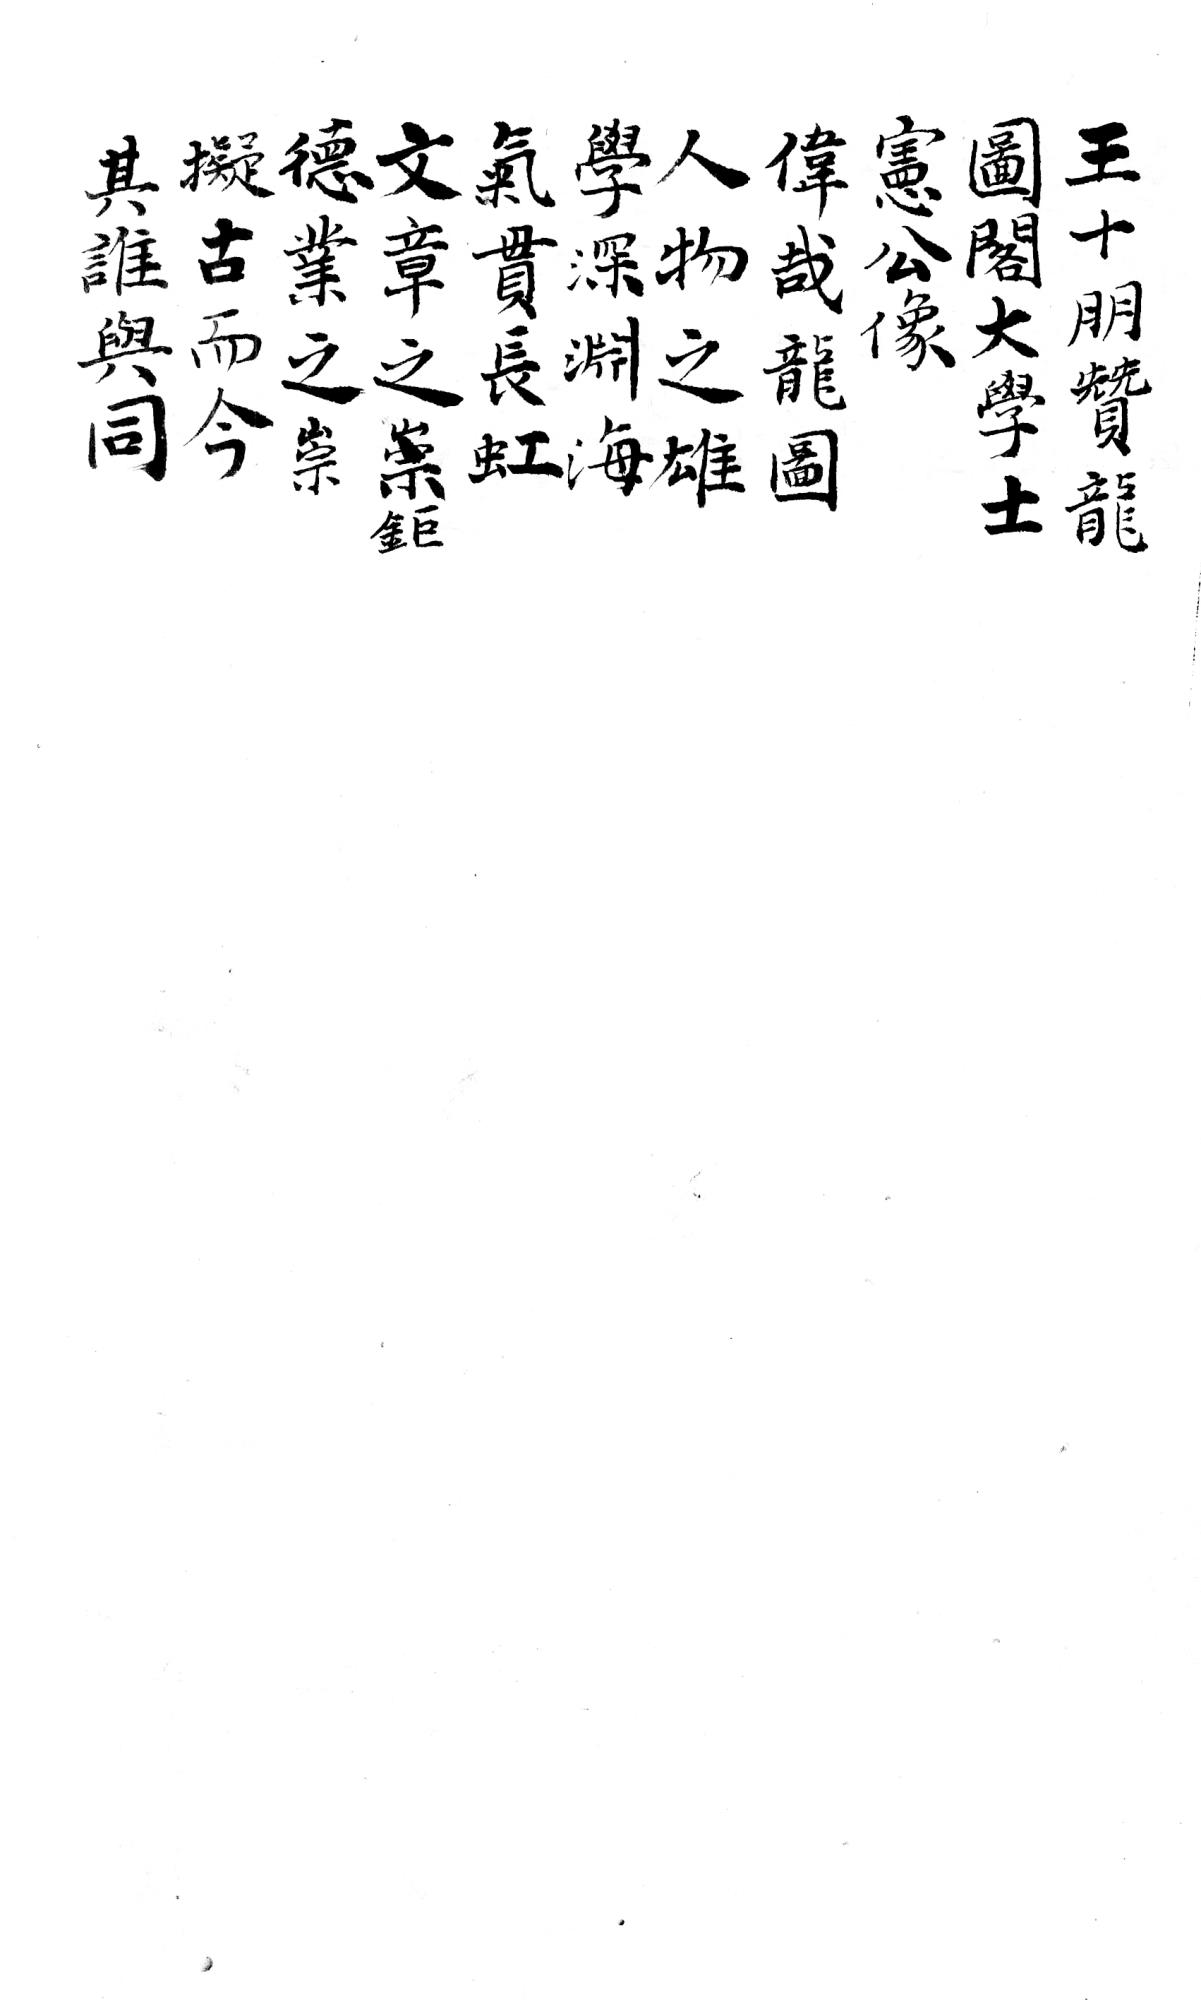 王十朋贊龍
圖閣大學士
憲公像
偉哉龍圖
人物之雄
學深淵海
氣貫長虹
文章之崇鉅
德業之崇
擬古而今
其誰與同